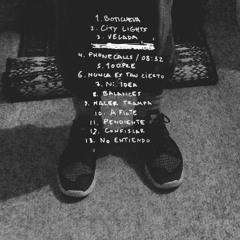 1. BOTICUEVA
2. CITY LIGHTS
3. VELADA
4. PHONECALLS / 08:32
5. 100PRE
6. NUNCA ES TAN CIERTO
7. NI IDEA
8. BALANCES
9. HACER TRAMPA
10. A FLOTE
11. PENDIENTE
12. CONFISCAR
13. NO ENTIENDO